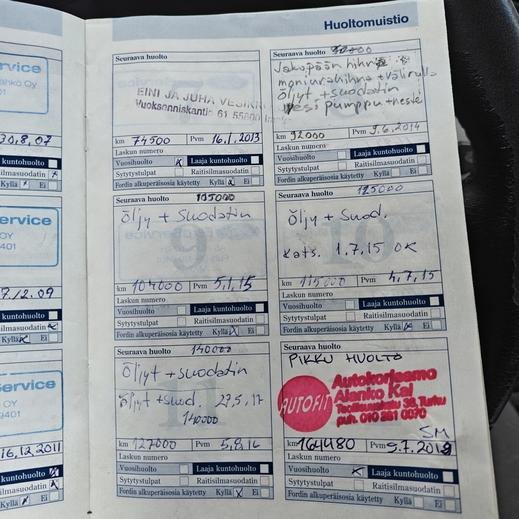 Huoltomuistio
ervice
OY
401
30.8.07
kuntohuolto
ilmasuodatin
Ei
ervice
OY
401
12.09
kuntohuolto
ilmasuodatin
Ei
ervice
OY
9401
16.12.2011
kuntohuolto
ilmasuodatin
Ei
Seuraava huolto
EINI JA JUHA
Vuoksenniskantie 61 55800
km 74500 Pvm 16.1.2013
Laskun numero
Vuosihuolto x Laaja kuntohuolto
Sytytystulpat Raitisilmasuodatin
Fordin alkuperäisosia käytetty Kyllä x Ei
Seuraava huolto
Jakopään hihna
moniurahihna +
Öljyt + suodatin
vesi pumppu +
km 92000 Pvm 9.6.2014
Laskun numero
Vuosihuolto Laaja kuntohuolto
Sytytystulpat Raitisilmasuodatin
Fordin alkuperäisosia käytetty Kyllä Ei
Seuraava huolto
Öljy + Suodatin
km 104000 Pvm 5.1.15
Laskun numero
Vuosihuolto Laaja kuntohuolto
Sytytystulpat Raitisilmasuodatin
Fordin alkuperäisosia käytetty Kyllä x Ei
Seuraava huolto 125000
Öljy + Suod.
Kats. 1.7.15 OK
km 115000 Pvm 4.7.15
Laskun numero
Vuosihuolto Laaja kuntohuolto
Sytytystulpat Raitisilmasuodatin
Fordin alkuperäisosia käytetty Kyllä x Ei
Seuraava huolto 140000
Öljyt + suodatin
Öljyt + suod. 27.5.17
140000
km 127000 Pvm 5.8.16
Laskun numero
Vuosihuolto Laaja kuntohuolto
Sytytystulpat Raitisilmasuodatin
Fordin alkuperäisosia käytetty Kyllä x Ei
Seuraava huolto
PIKKU HUOLTO
AUTOFIT
Autokorjaamo
Alanko Kai
38, Turku
puh. 010 281 0070
SM
km 164480 Pvm 5.7.2019
Laskun numero
Vuosihuolto x Laaja kuntohuolto
Sytytystulpat Raitisilmasuodatin
Fordin alkuperäisosia käytetty Kyllä Ei